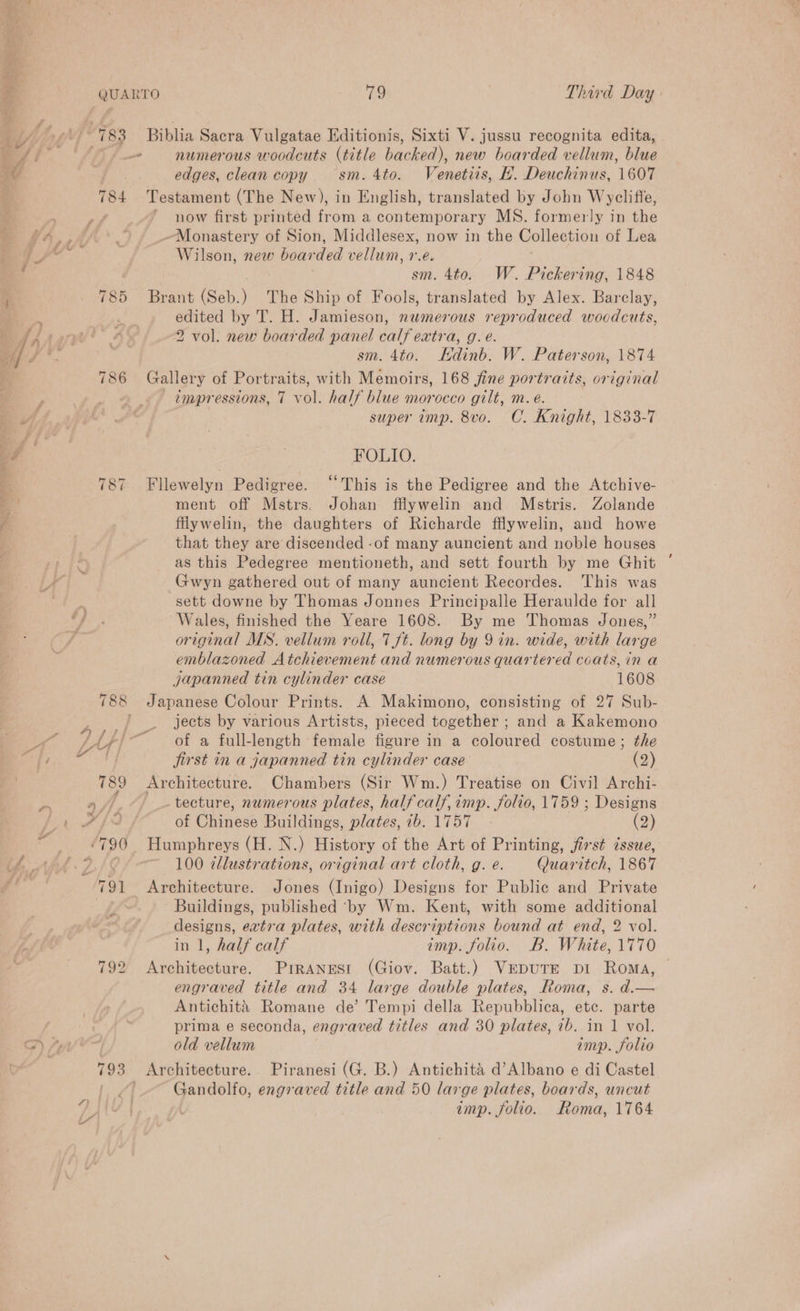 QUARTO 79 Third Day
783 Biblia Sacra Vulgatae Editionis, Sixti V. jussu recognita edita,
numerous woodcuts (title backed), new boarded vellum, blue
edges, clean copy sm. 4to. Venetiis, E. Deuchinus, 1607
784 Testament (The New), in English, translated by John Wycliffe,
now first printed from a contemporary MS. formerly in the
Monastery of Sion, Middlesex, now in the Collection of Lea
Wilson, new boarded vellum, r.e.
sm. 4to. W. Pickering, 1848
785 Brant (Seb.) The Ship of Fools, translated by Alex. Barclay,
edited by T. H. Jamieson, numerous reproduced woodcuts,
2 vol. new boarded panel calf extra, g. e.
sm. 4to. Edinb. W. Paterson, 1874
786 Gallery of Portraits, with Memoirs, 168 fine portraits, original
impressions, 7 vol. half blue morocco gilt, m. e.
super imp. 8vo. C. Knight, 1833-7
FOLIO.
787 Fllewelyn Pedigree. “This is the Pedigree and the Atchive-
ment off Mstrs. Johan fflywelin and Mstris. Zolande
fflywelin, the daughters of Richarde fflywelin, and howe
that they are discended of many auncient and noble houses
as this Pedegree mentioneth, and sett fourth by me Ghit
Gwyn gathered out of many auncient Recordes. This was
sett downe by Thomas Jonnes Principalle Heraulde for all
Wales, finished the Yeare 1608. By me Thomas Jones,”
original MS. vellum roll, 7 ft. long by 9 in. wide, with large
emblazoned Atchievement and numerous quartered coats, in a
japanned tin cylinder case 1608
788 Japanese Colour Prints. A Makimono, consisting of 27 Sub-
jects by various Artists, pieced together; and a Kakemono
of a full-length female figure in a coloured costume; the
first in a japanned tin cylinder case (2)
789 Architecture. Chambers (Sir Wm.) Treatise on Civil Archi-
tecture, numerous plates, half calf, imp. folio, 1759; Designs
of Chinese Buildings, plates, ib. 1757 (2)
790 Humphreys (H. N.) History of the Art of Printing, first issue,
100 illustrations, original art cloth, g. e. Quaritch, 1867
791 Architecture. Jones (Inigo) Designs for Public and Private
Buildings, published by Wm. Kent, with some additional
designs, extra plates, with descriptions bound at end, 2 vol.
in 1, half calf imp. folio. B. White, 1770
792 Architecture. PIRANESI (Giov. Batt.) VEDUTE DI ROMA,
engraved title and 34 large double plates, Roma, s. d.—
Antichità Romane de’ Tempi della Repubblica, etc. parte
prima e seconda, engraved titles and 30 plates, ib. in 1 vol.
old vellum imp. folio
793 Architecture. Piranesi (G. B.) Antichità d’Albano e di Castel
Gandolfo, engraved title and 50 large plates, boards, uncut
imp. folio. Roma, 1764